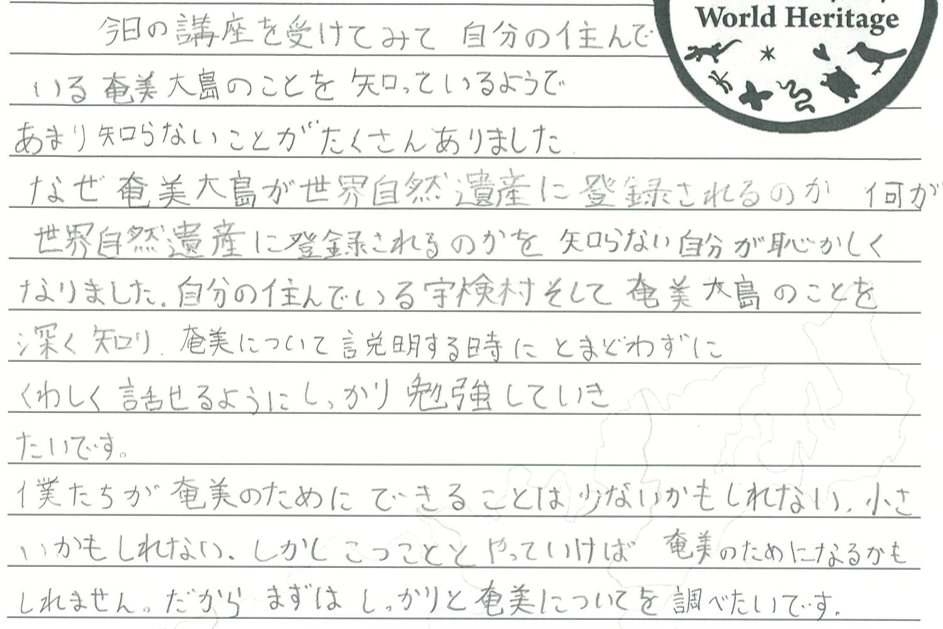 World Heritage
今日の講座を受けてみて 自分の住んで
いる奄美大島のことを 知っているようで
あまり知らないことがたくさんありました
なぜ奄美大島が世界自然遺産に登録されるのか 何が
世界自然遺産に登録されるのかを 知らない自分が恥かしく
なりました。自分の住んでいる宇検村そして奄美大島のことを
深く知り、奄美について説明する時にとまどわずに
くわしく話せるようにしっかり勉強していき
たいです。
僕たちが奄美のためにできることは少ないかもしれない、小さ
いかもしれない、しかしこつこつとやっていけば 奄美のためになるかも
しれません。だから まずは しっかりと奄美についてを調べたいです。